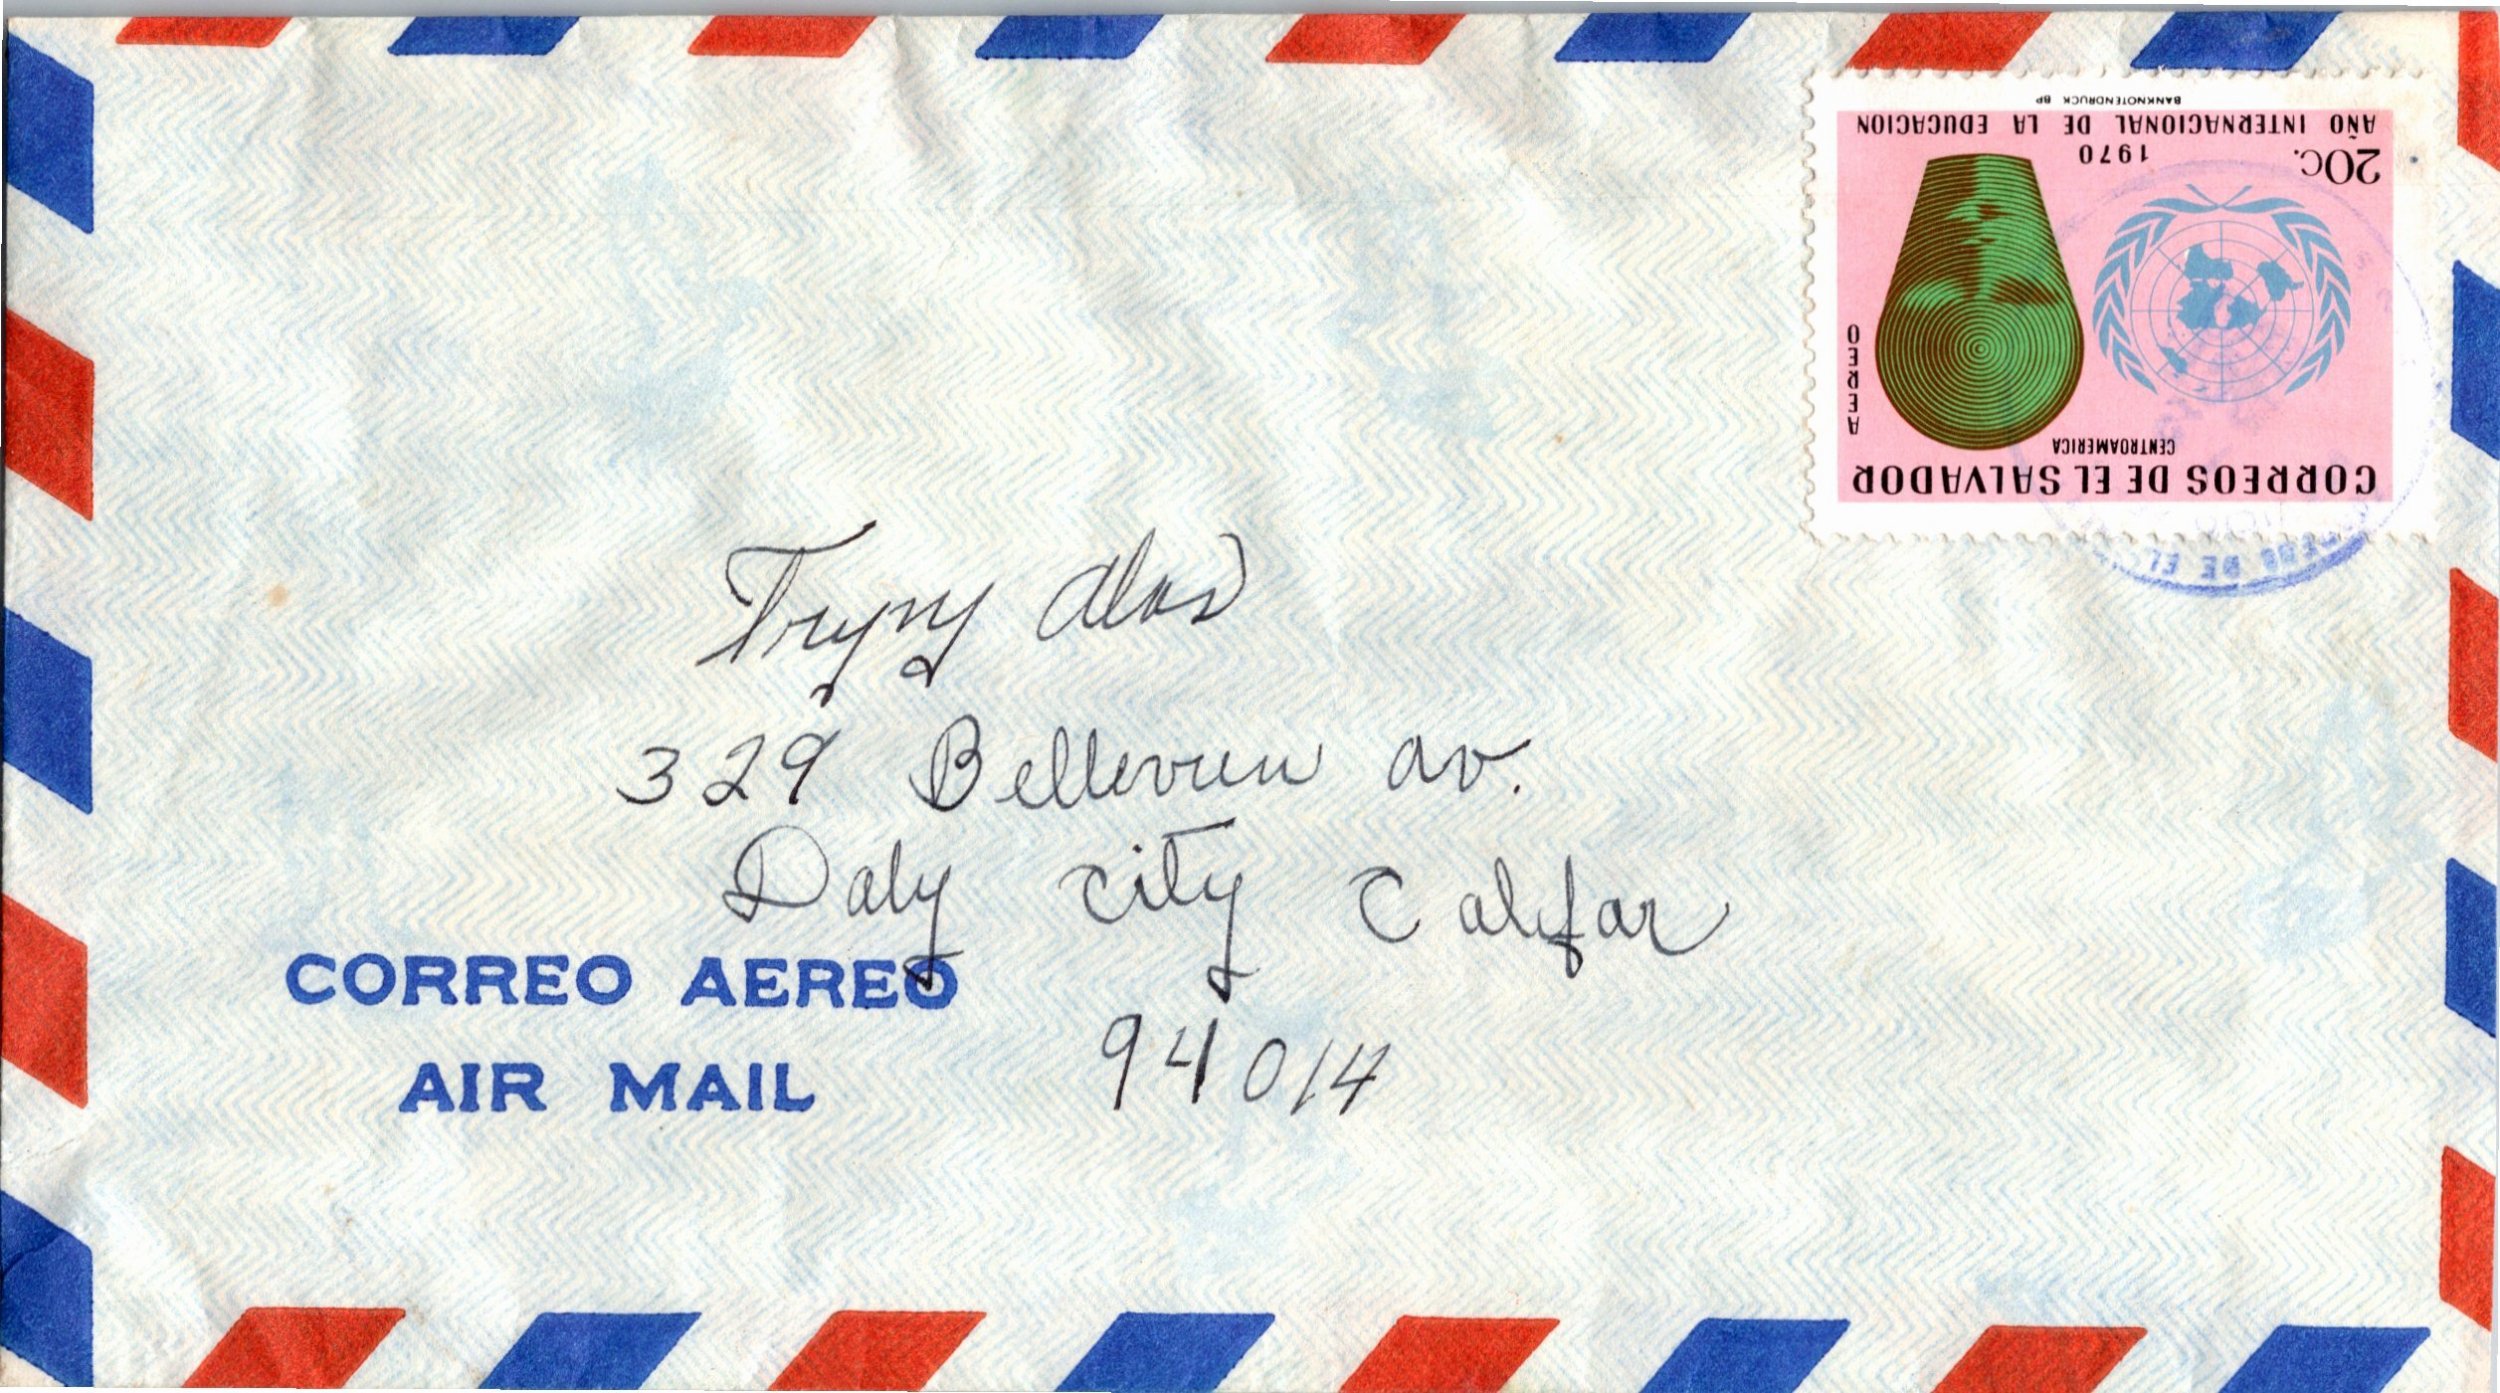 BANKNOTENDRUCK BP
AÑO INTERNACIONAL DE LA EDUCACION
1970
20c.
AEREO
CENTROAMERICA
CORREOS DE EL SALVADOR
DE EL
329 Bellevuw av.
Daly city Califar
CORREO AEREO
94014
AIR MAIL